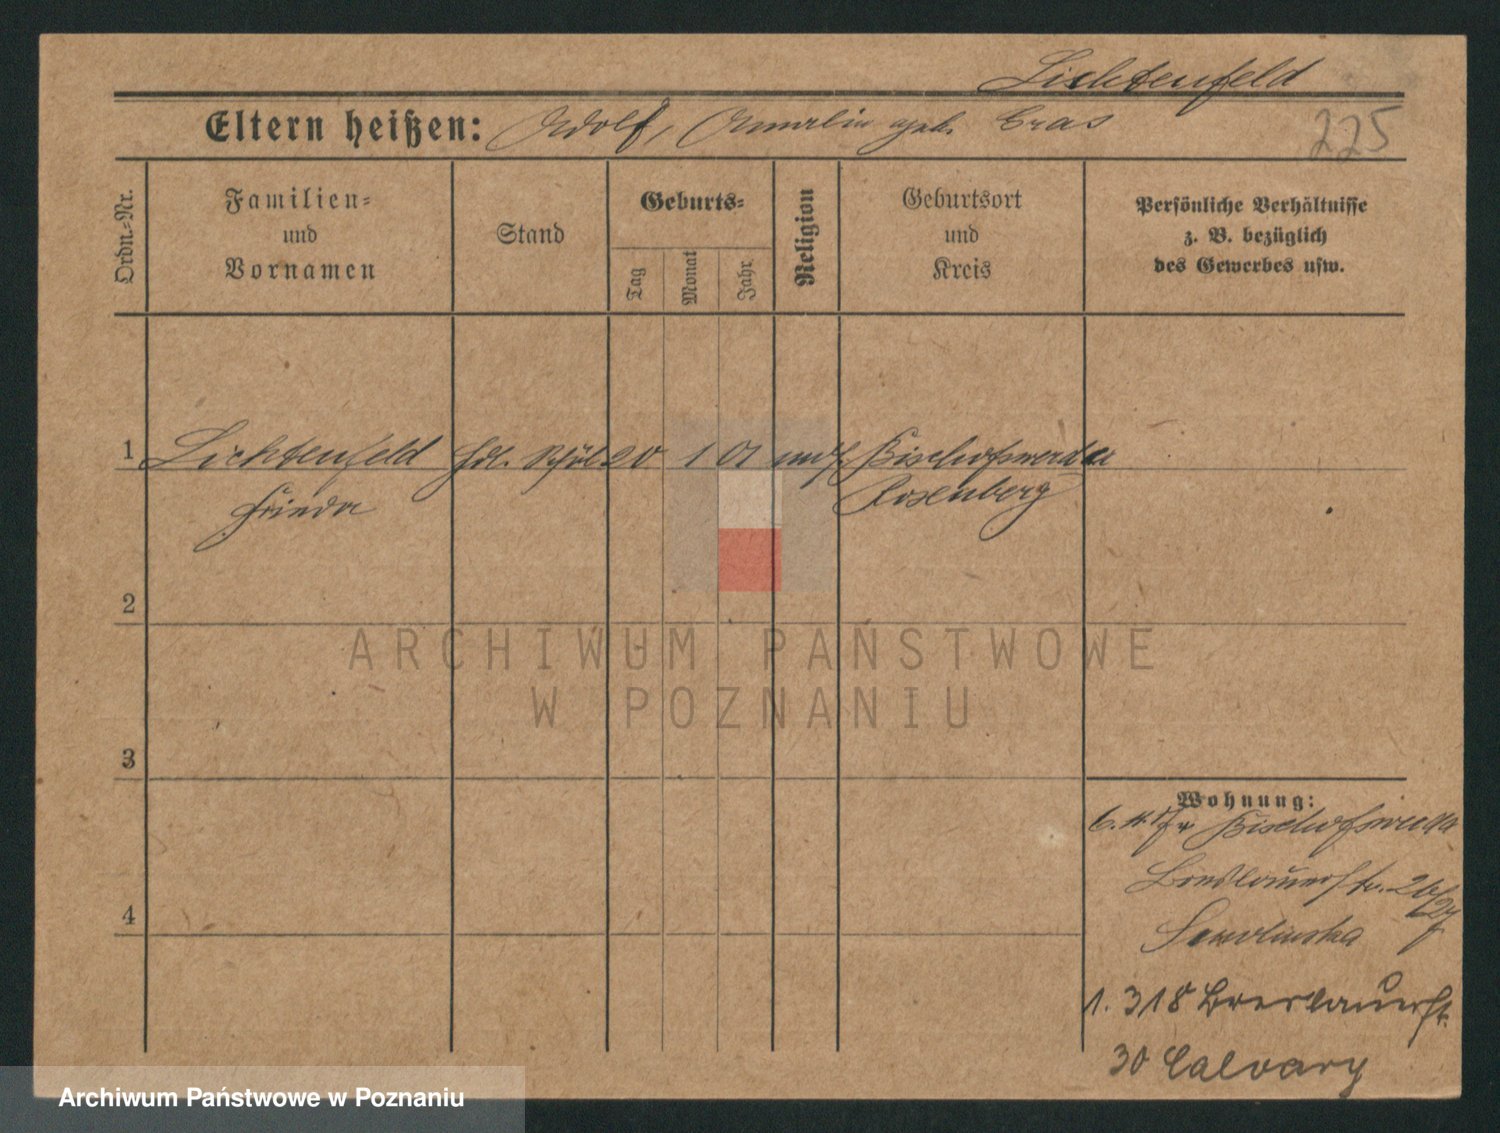 Lichtenfeld
Eltern heißen: Adolf, Amalie geb. Cras
225
Ordn.-Nr.
Familien-
und
Vornamen
Stand
Geburts-
Tag
Monat
Jahr
Religion
Geburtsort
und
Kreis
Persönliche Verhältnisse
z. B. bezüglich
des Gewerbes usw.
1 Lichtenfeld 20 1 01 Bischofswerder
Frieda Rosenberg
2
3
4
Wohnung:
Bischofswerder
Breslauerstr. 26/27
1. 318 Breslauerst.
30 Calvary
ARCHIWUM PAŃSTWOWE
W POZNANIU
Archiwum Państwowe w Poznaniu